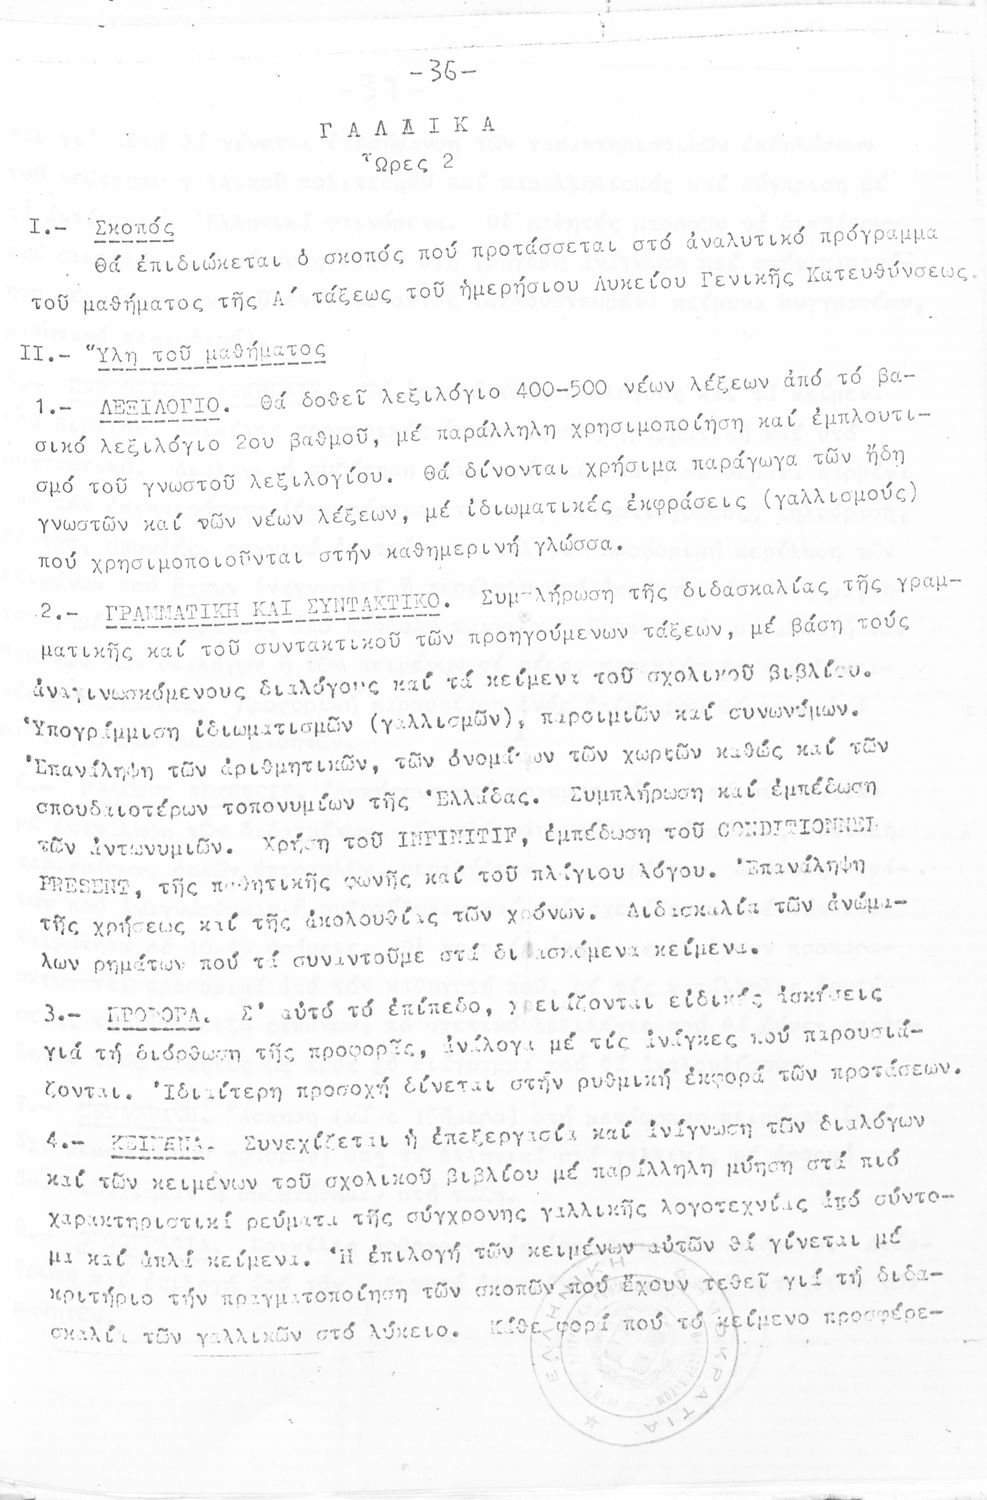 -36-
ΓΑΛΛΙΚΑ
Ὧρες 2
Ι.- Σκοπός
Θά ἐπιδιώκεται ὁ σκοπός πού προτάσσεται στό ἀναλυτικό πρόγραμμα
τοῦ μαθήματος τῆς Α΄ τάξεως τοῦ ἡμερήσιου Λυκείου Γενικῆς Κατευθύνσεως.
ΙΙ.- Ὕλη τοῦ μαθήματος
1.- ΛΕΞΙΛΟΓΙΟ. Θά δοθεῖ λεξιλόγιο 400-500 νέων λέξεων ἀπό τό βα-
σικό λεξιλόγιο 2ου βαθμοῦ, μέ παράλληλη χρησιμοποίηση καί ἐμπλουτι-
σμό τοῦ γνωστοῦ λεξιλογίου. Θά δίνονται χρήσιμα παράγωγα τῶν ἤδη
γνωστῶν καί τῶν νέων λέξεων, μέ ἰδιωματικές ἐκφράσεις (γαλλισμούς)
πού χρησιμοποιοῦνται στήν καθημερινή γλώσσα.
2.- ΓΡΑΜΜΑΤΙΚΗ ΚΑΙ ΣΥΝΤΑΚΤΙΚΟ. Συμπλήρωση τῆς διδασκαλίας τῆς γραμ-
ματικῆς καί τοῦ συντακτικοῦ τῶν προηγούμενων τάξεων, μέ βάση τούς
ἀναγινωσκόμενους διαλόγους καί τά κείμενα τοῦ σχολικοῦ βιβλίου.
Ὑπογράμμιση ἰδιωματισμῶν (γαλλισμῶν), παροιμιῶν καί συνωνύμων.
Ἐπανάληψη τῶν ἀριθμητικῶν, τῶν ὀνομάτων τῶν χωρῶν καθώς καί τῶν
σπουδαιοτέρων τοπονυμίων τῆς Ἑλλάδας. Συμπλήρωση καί ἐμπέδωση
τῶν ἀντωνυμιῶν. Χρήση τοῦ INFINITIF, ἐμπέδωση τοῦ CONDITIONNEL
PRESENT, τῆς παθητικῆς φωνῆς καί τοῦ πλάγιου λόγου. Ἐπανάληψη
τῆς χρήσεως καί τῆς ἀκολουθίας τῶν χρόνων. Διδασκαλία τῶν ἀνώμα-
λων ρημάτων πού τά συναντοῦμε στά διδασκόμενα κείμενα.
3.- ΠΡΟΦΟΡΑ. Σ' αὐτό τό ἐπίπεδο, χρειάζονται εἰδικές ἀσκήσεις
γιά τή διόρθωση τῆς προφορᾶς, ἀνάλογα μέ τίς ἀνάγκες πού παρουσιά-
ζονται. Ἰδιαίτερη προσοχή δίνεται στήν ρυθμική ἐκφορά τῶν προτάσεων.
4.- ΚΕΙΜΕΝΑ. Συνεχίζεται ἡ ἐπεξεργασία καί ἀνάγνωση τῶν διαλόγων
καί τῶν κειμένων τοῦ σχολικοῦ βιβλίου μέ παράλληλη μύηση στά πιό
χαρακτηριστικά ρεύματα τῆς σύγχρονης γαλλικῆς λογοτεχνίας ἀπό σύντο-
μα καί ἁπλά κείμενα. Ἡ ἐπιλογή τῶν κειμένων αὐτῶν θά γίνεται μέ
κριτήριο τήν πραγματοποίηση τῶν σκοπῶν πού ἔχουν τεθεῖ γιά τή διδα-
σκαλία τῶν γαλλικῶν στό λύκειο. Κάθε φορά πού τό κείμενο προσφέρε-
ΕΛΛΗΝΙΚΗ ΔΗΜΟΚΡΑΤΙΑ